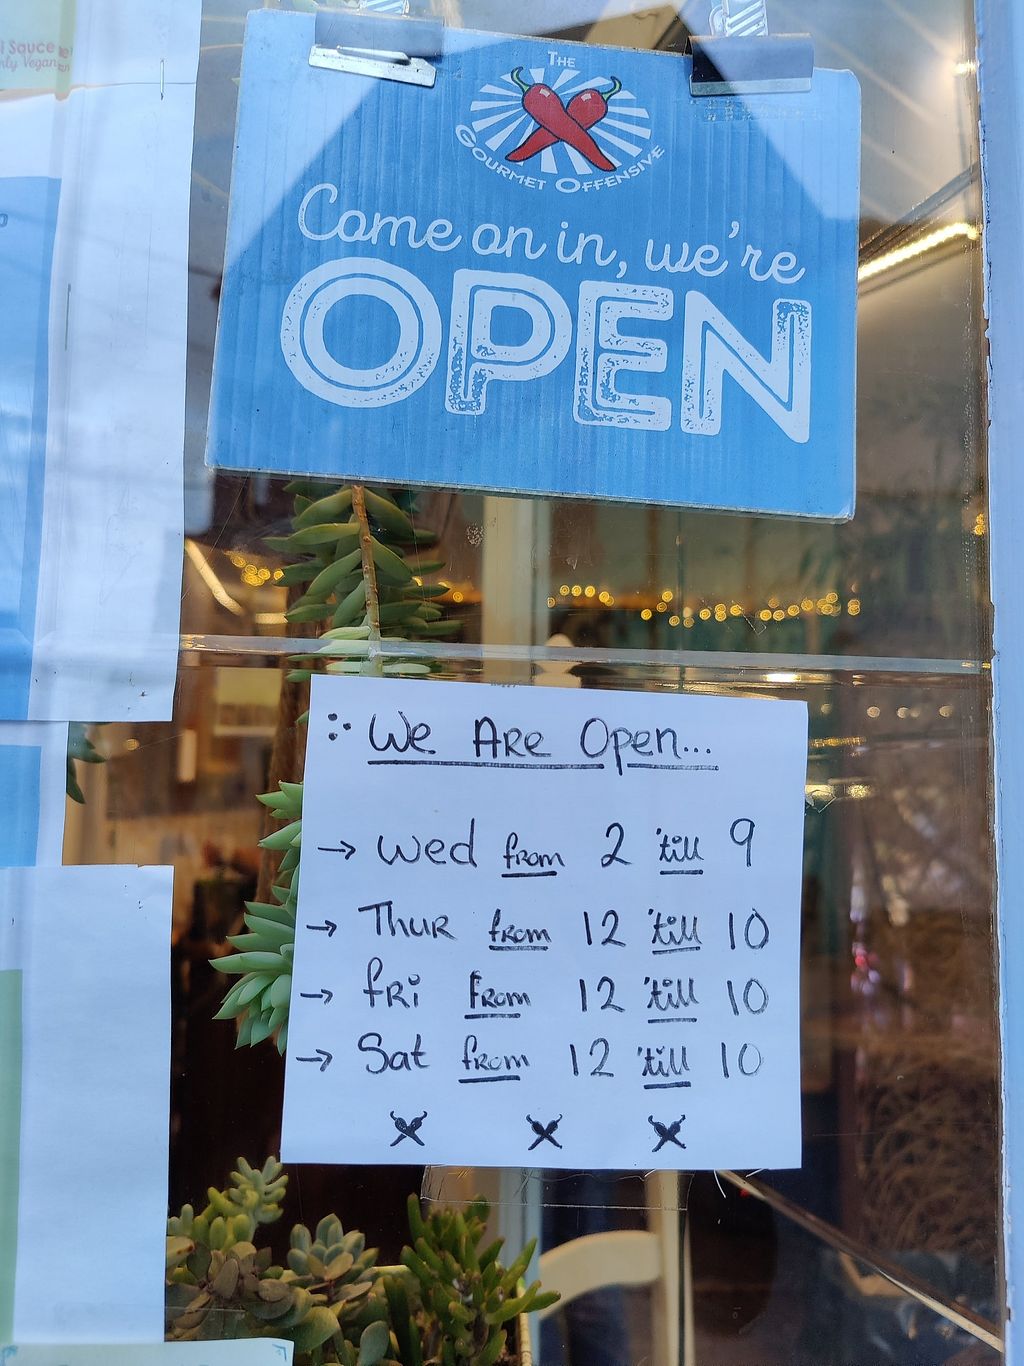 l Sauce
nly Vegan
THE
GOURMET OFFENSIVE
Come on in, we're
OPEN
We Are Open...
→ Wed from 2 'till 9
→ Thur from 12 'till 10
→ fRi from 12 'till 10
→ Sat from 12 'till 10